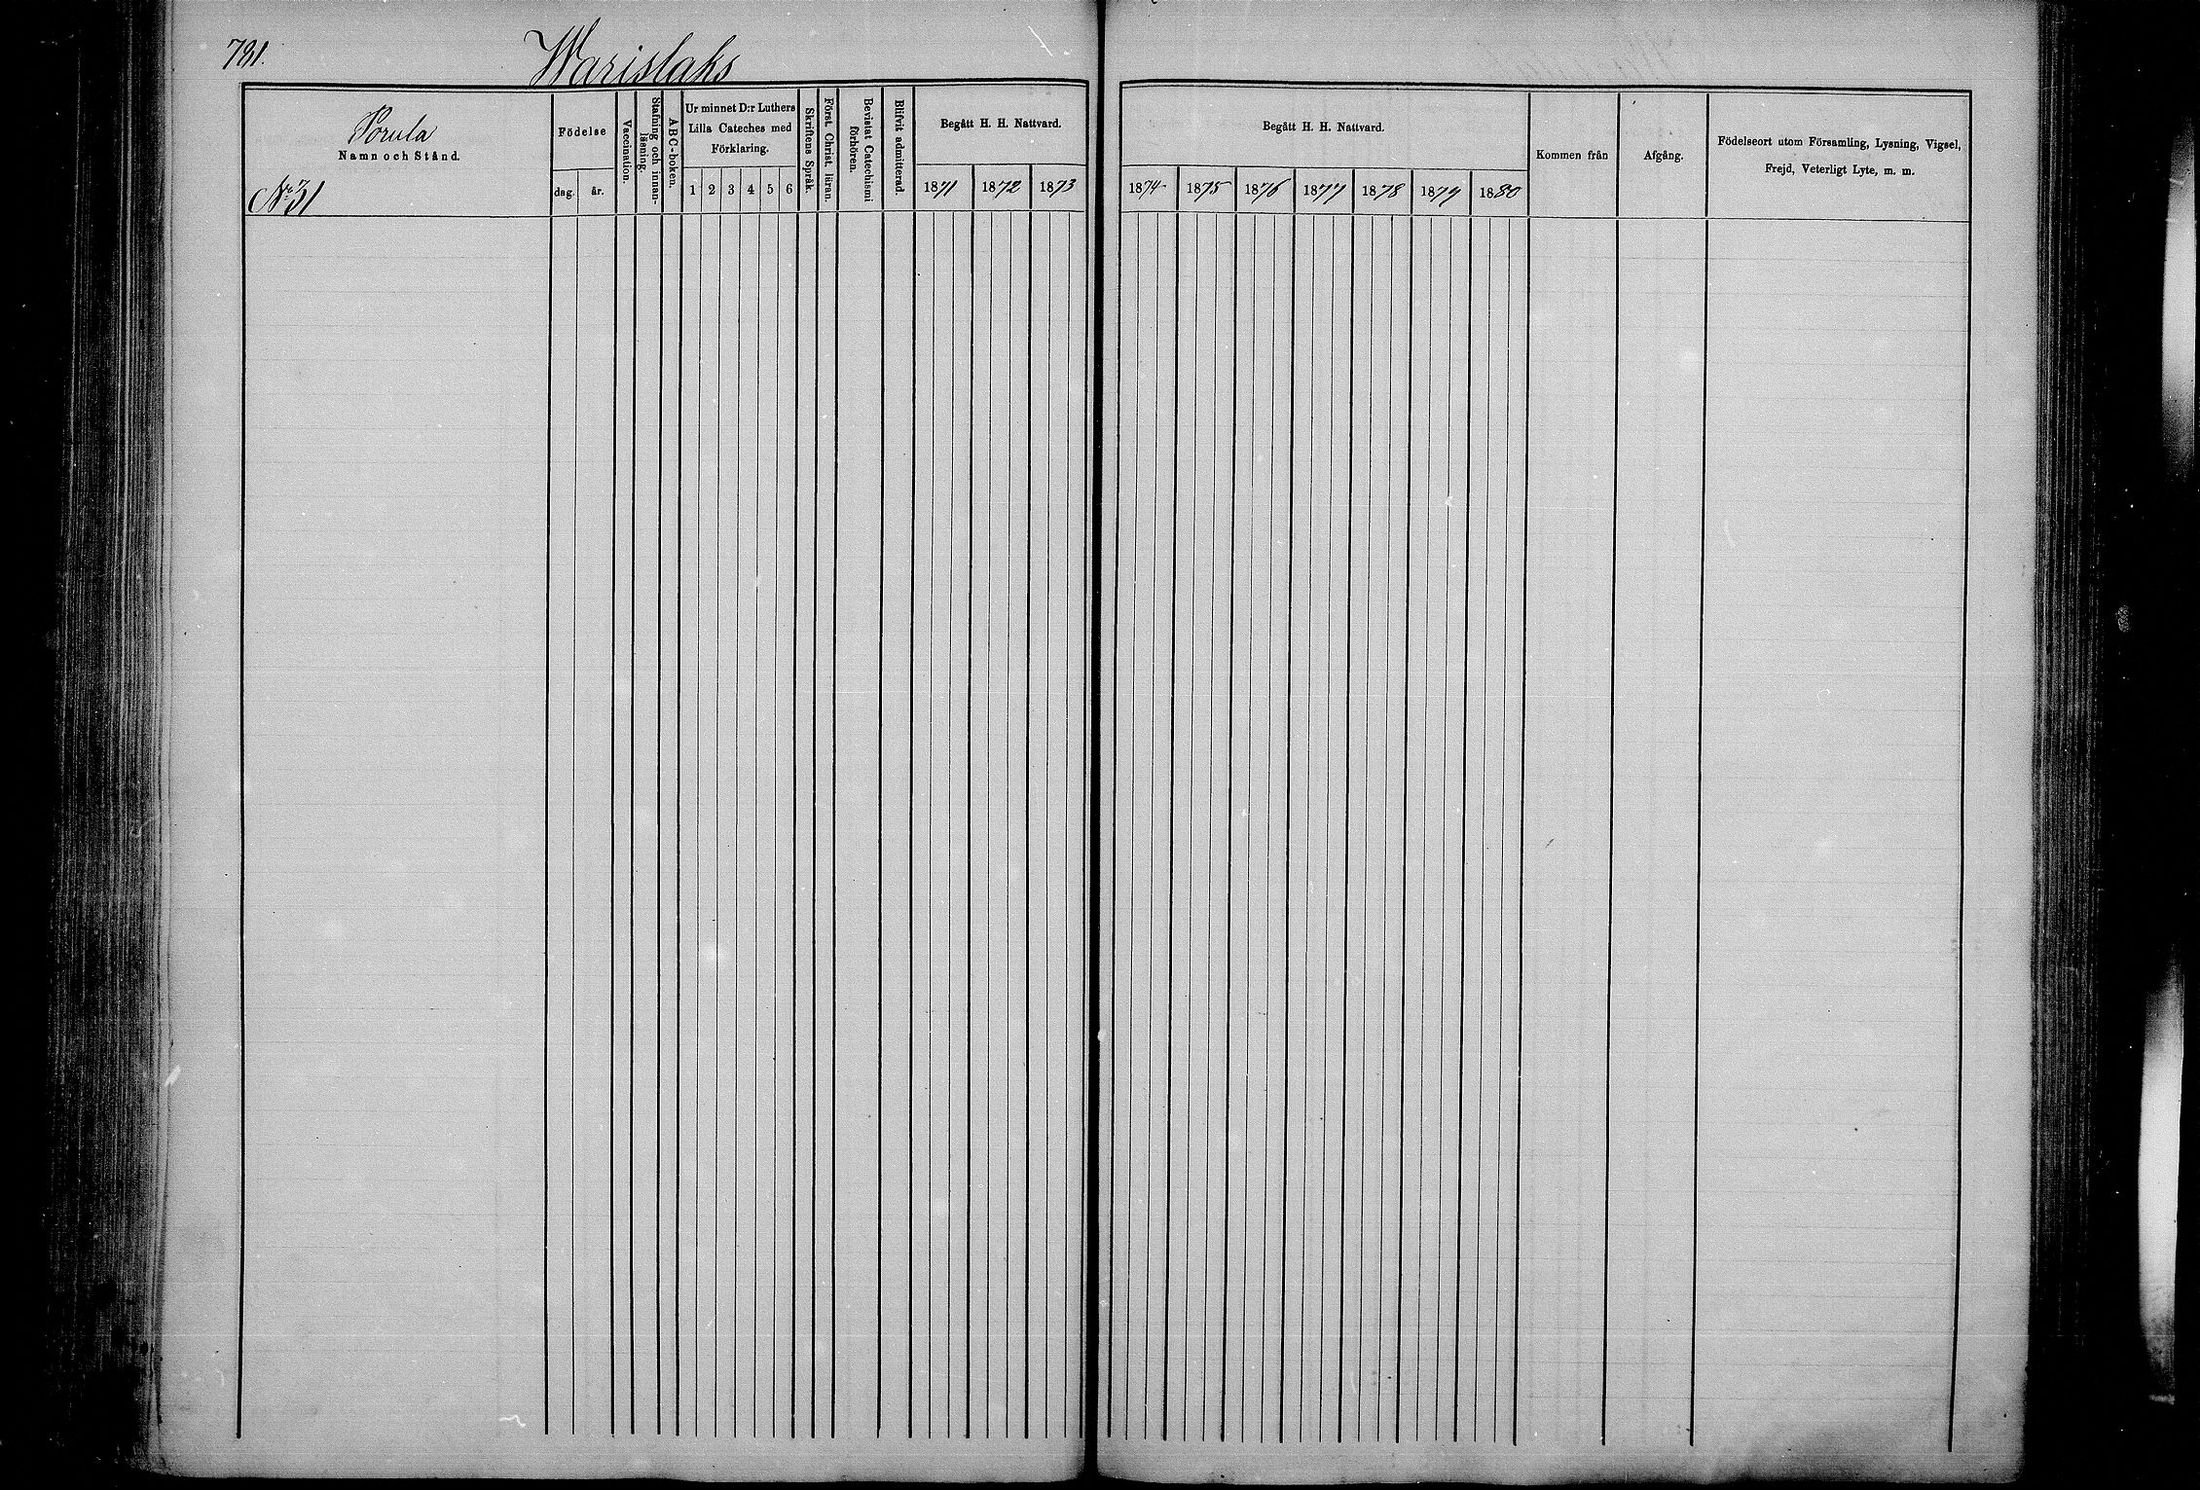 781.
Warislaks
Porula
Namn och Stånd.
No 31
Födelse
dag.
år.
Vaccination.
Stafning och innan-
läsning.
ABC-boken.
Ur minnet D:r Luthers
Lilla Cateches med
Förklaring.
1 2 3 4 5 6
Skriftens Språk.
Först. Christ. läran.
Bevistat Catechismi
förhören.
Blifvit admitterad.
Begått H. H. Nattvard.
1871 1872 1873
Begått H. H. Nattvard.
1874 1875 1876 1877 1878 1879 1880
Kommen från
Afgång.
Födelseort utom Församling, Lysning, Vigsel,
Frejd, Veterligt Lyte, m. m.